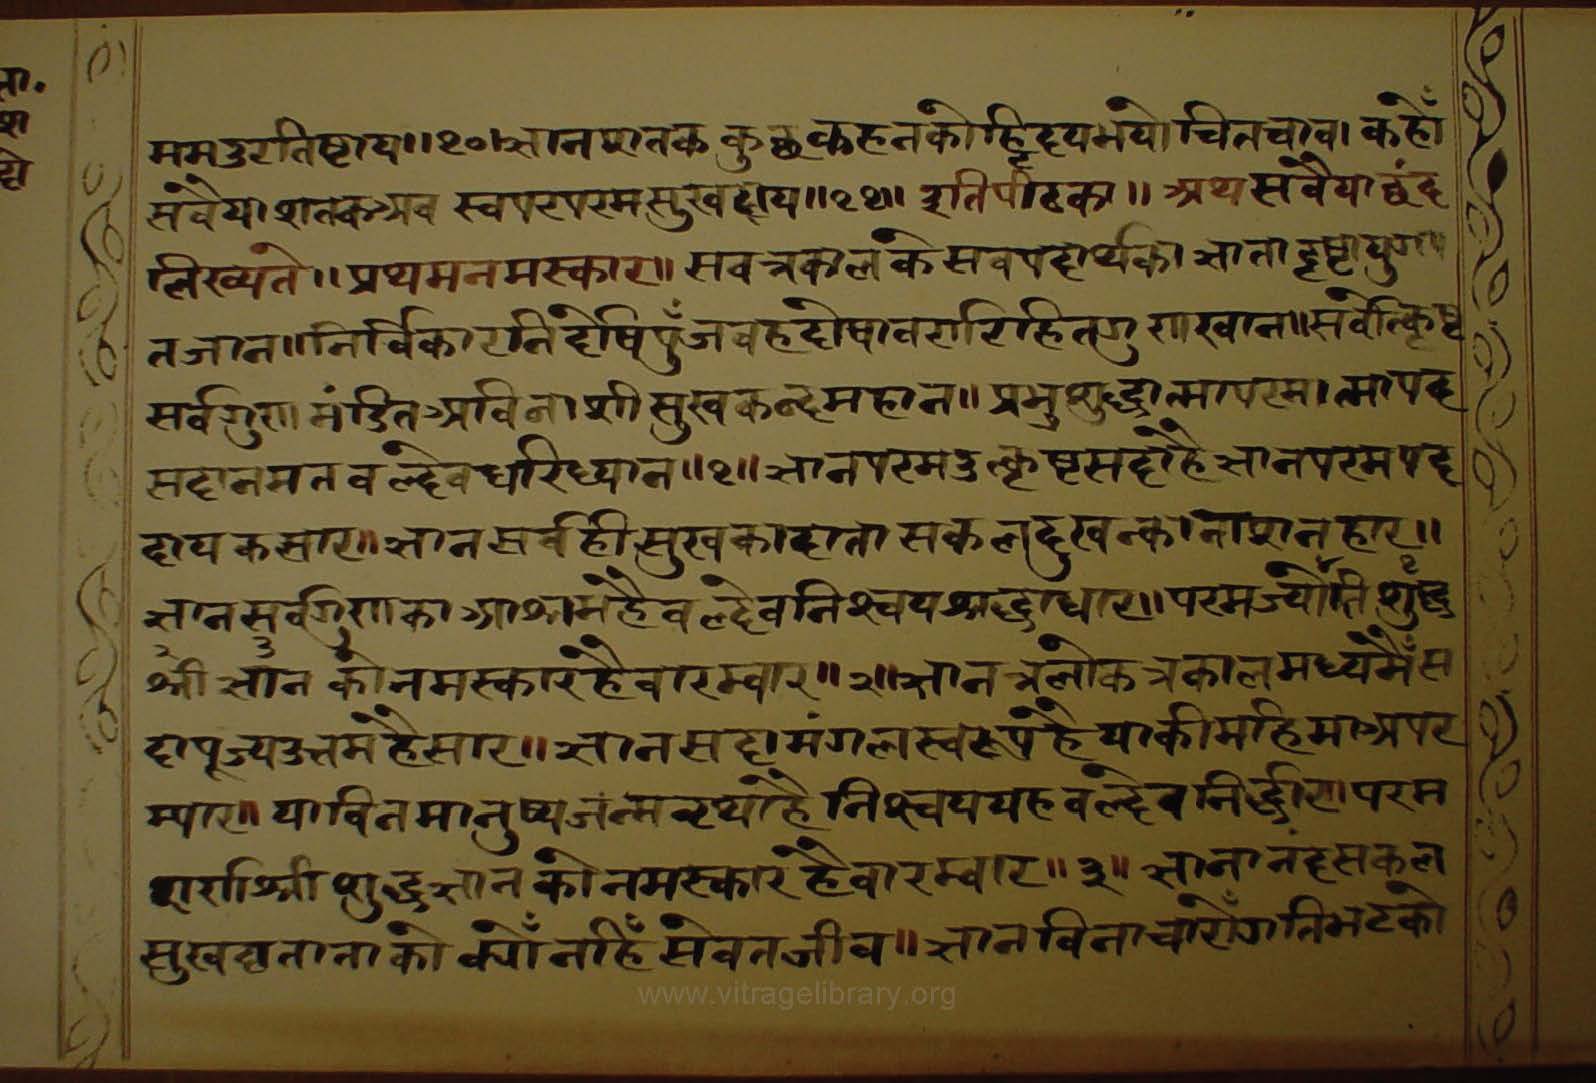 ममउरतिष्टाय॥१०॥ज्ञानशतक कुछ कहनको हिृदय भयो चितचाव। कहोँ
सवैया शतक अव स्वपरपरमसुखदाय॥११॥ इतिपीठका॥ अथ सवैया छंद
लिख्यंते॥ प्रथमनमस्कार॥ सव त्रकालके सवपदार्थका ज्ञाता दृष्टा युग
तजान॥ निर्विकार निर्दोषि पुँज वह दोषावरणरिहितगुणखान॥ सर्वोत्कृष्ट
सर्वगुण मंडित अविनाशी सुखकन्दमहान॥ प्रभु शुद्धात्मा परमात्मा पद
सदा नमत वल्देव धरि ध्यान॥१॥ ज्ञान परम उत्कृष्ट सदां है ज्ञान परम पद
दायक सार॥ ज्ञान सर्व ही सुख का दाता सकल दुखन्का नाशनहार॥
ज्ञान सर्वगुण का आश्रम है वल्देव निश्चय श्रद्धा धार॥ परमज्योति शुद्ध
श्री ज्ञान को नमस्कार है वारम्वार॥२॥ ज्ञान त्रलोक त्रकाल मध्य मैँ स
दा पूज्य उत्तम है सार॥ ज्ञान सदा मंगल स्वरूप है याकी महिमा अपर
म्पार॥ या विन मानुष्य जन्म व्रथा है निश्चय यह वल्देव निर्द्धार। परम
शर्ण श्री शुद्ध ज्ञान को नमस्कार है वारम्वार॥३॥ ज्ञानानंद सकल
सुख को क्योँ नहिँ सेवत जीव॥ ज्ञान विना चारोँ गति भटको
www.vitragelibrary.org